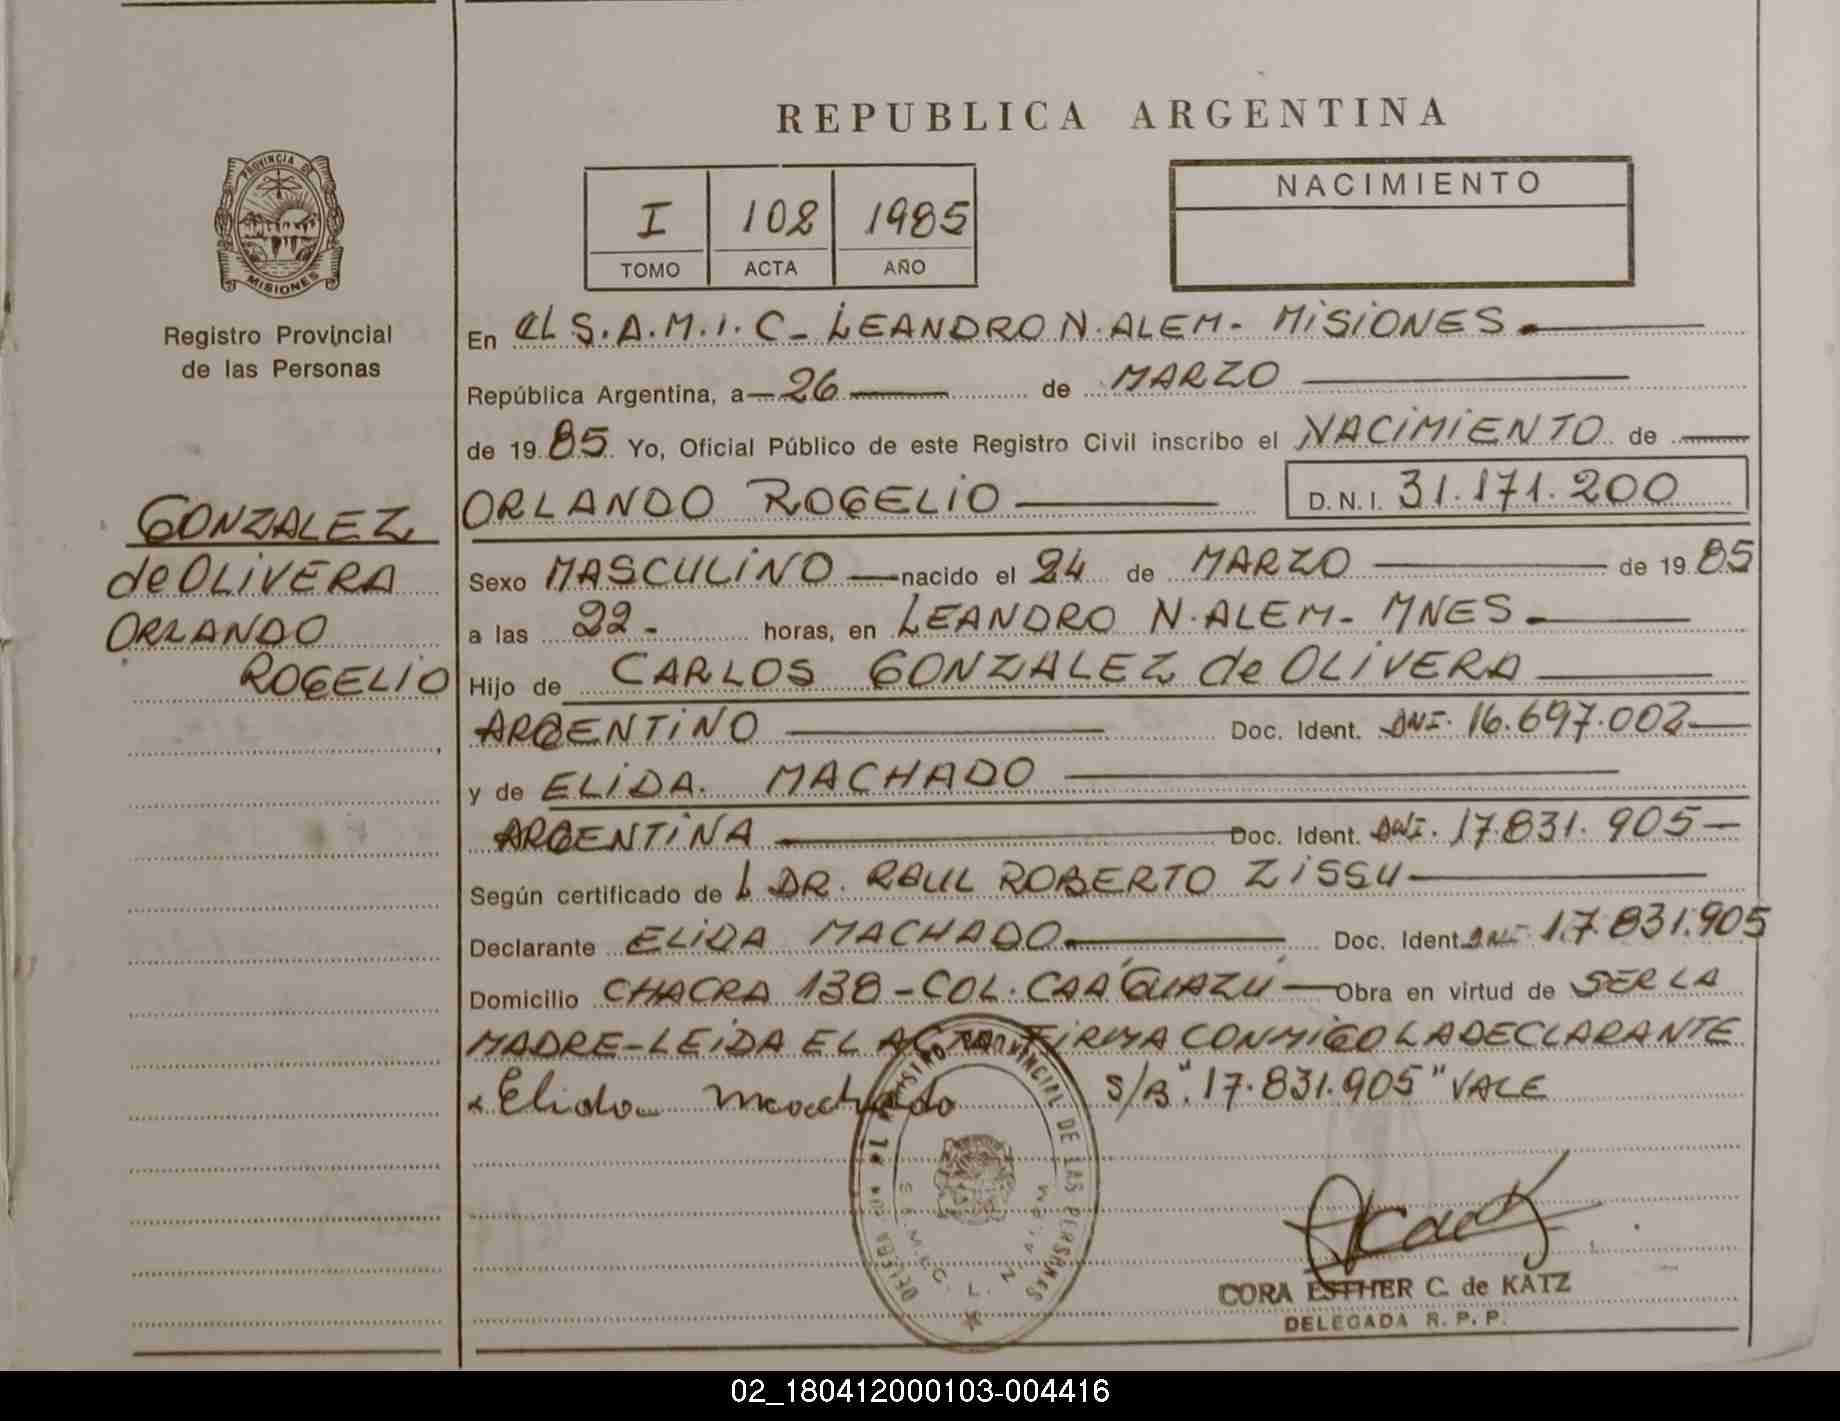 REPUBLICA ARGENTINA
PROVINCIA DE
MISIONES
Registro Provincial
de las Personas
I 102 1985
TOMO ACTA AÑO
NACIMIENTO
En el S.A.M.I.C - LEANDRO N. ALEM - MISIONES.
República Argentina, a 26 de MARZO
de 1985 Yo, Oficial Público de este Registro Civil inscribo el NACIMIENTO de
GONZALEZ
de OLIVERA
ORLANDO
ROGELIO
ORLANDO ROGELIO D.N.I. 31.171.200
Sexo MASCULINO nacido el 24 de MARZO de 1985
a las 22- horas, en LEANDRO N. ALEM - MNES.
Hijo de CARLOS GONZALEZ de OLIVERA
ARGENTINO Doc. Ident. DNI. 16.697.002
y de ELIDA. MACHADO
ARGENTINA Doc. Ident. DNI. 17.831.905
Según certificado de L DR. RAUL ROBERTO ZISSU
Declarante ELIDA MACHADO Doc. Ident. DNI 17.831.905
Domicilio CHACRA 138 - COL. CAA GUAZU Obra en virtud de SER LA
MADRE - LEIDA EL ACTA FIRMA CONMIGO LA DECLARANTE
Elida Machado S/B "17.831.905" VALE
REGISTRO PROVINCIAL DE LAS PERSONAS
CORA ESTHER C. de KATZ
DELEGADA R. P. P.
02_180412000103-004416